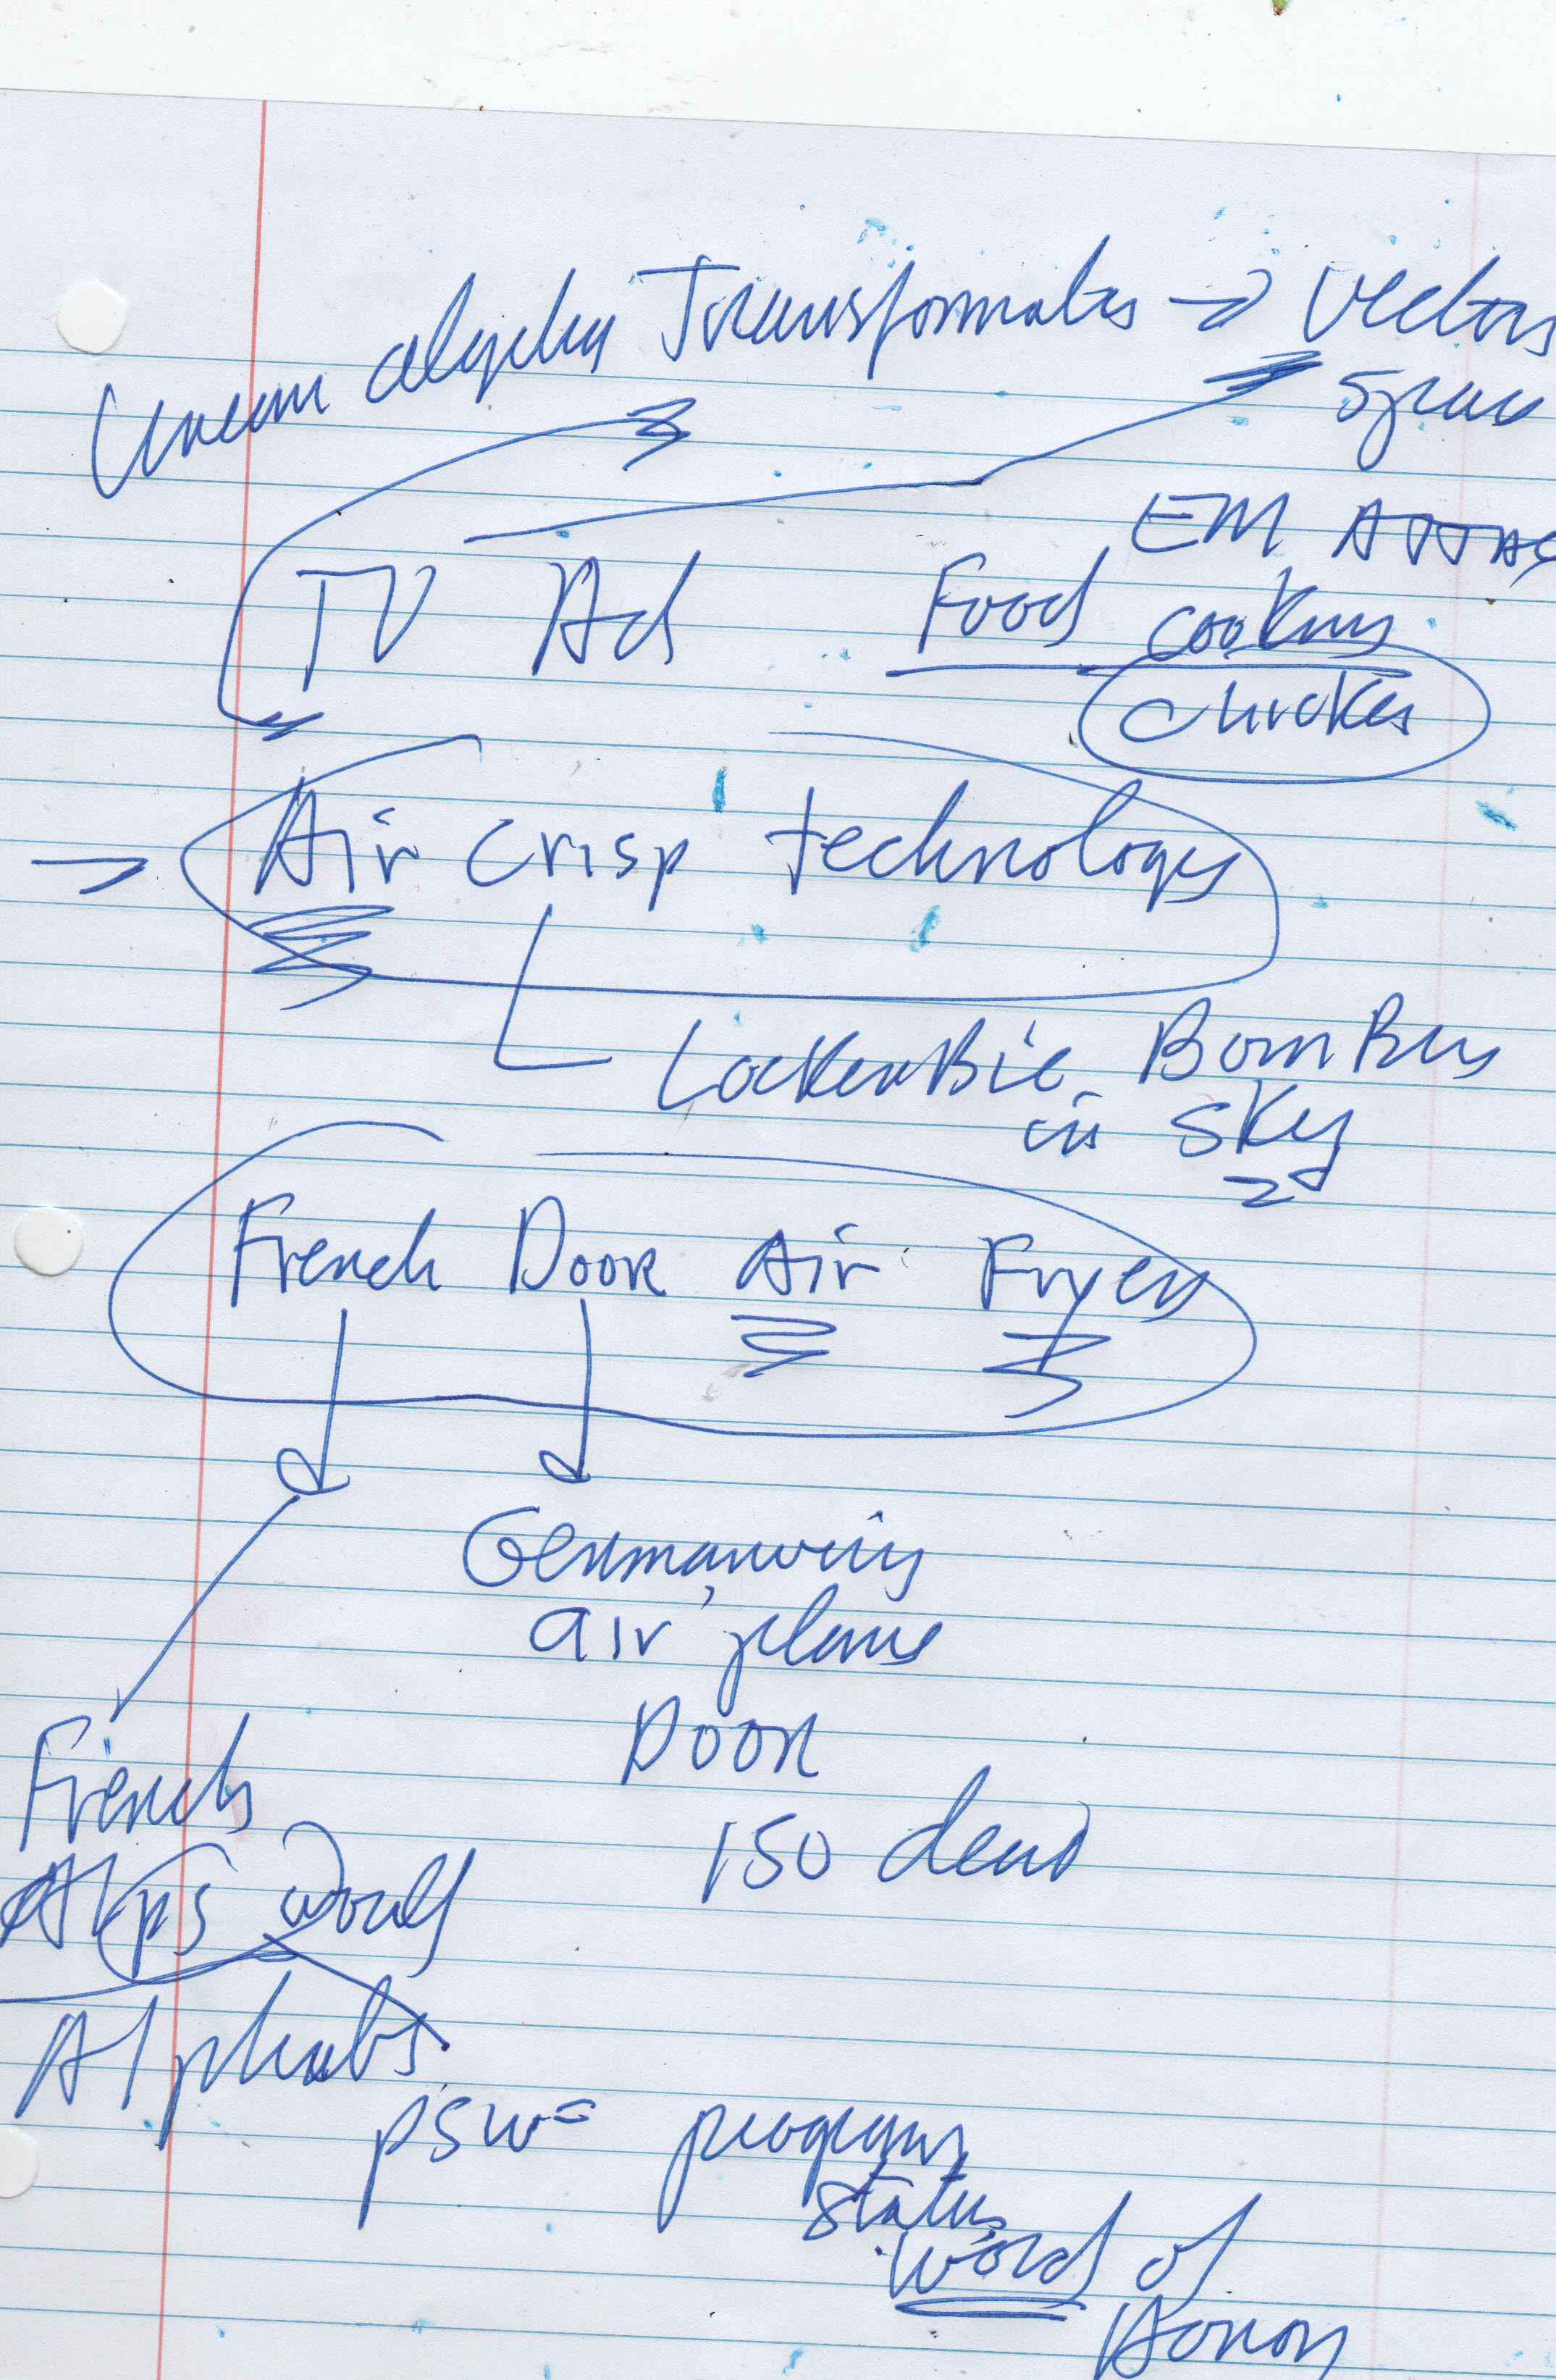 Linear algebra Transformates → Vectors
Space
EM ATTAC
TV Ad Food cooking
chicken
→ Air crisp technology
LockerBie Bombing
in sky
French Door Air Fryer
Germanwing
air plane
Door
150 dead
French
Alps word
Alphabs
psw= program
status
word of
Honor